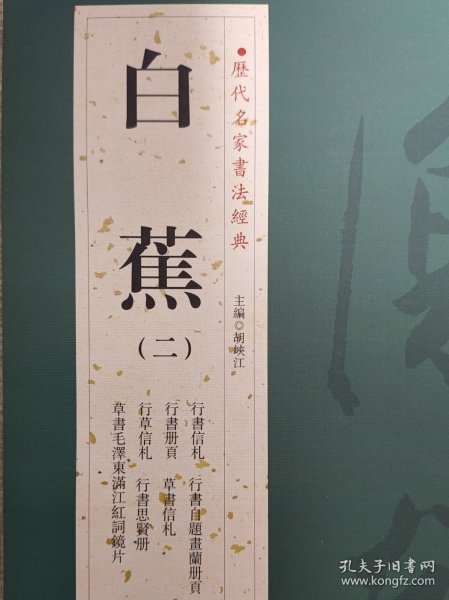 ●歷代名家書法經典
主編◎胡峽江
白蕉
(二)
行書信札 行書自題畫蘭册頁
行書册頁 草書信札
行草信札 行書思賢册
草書毛澤東滿江紅詞鏡片
孔夫子旧书网
www.kongfz.com